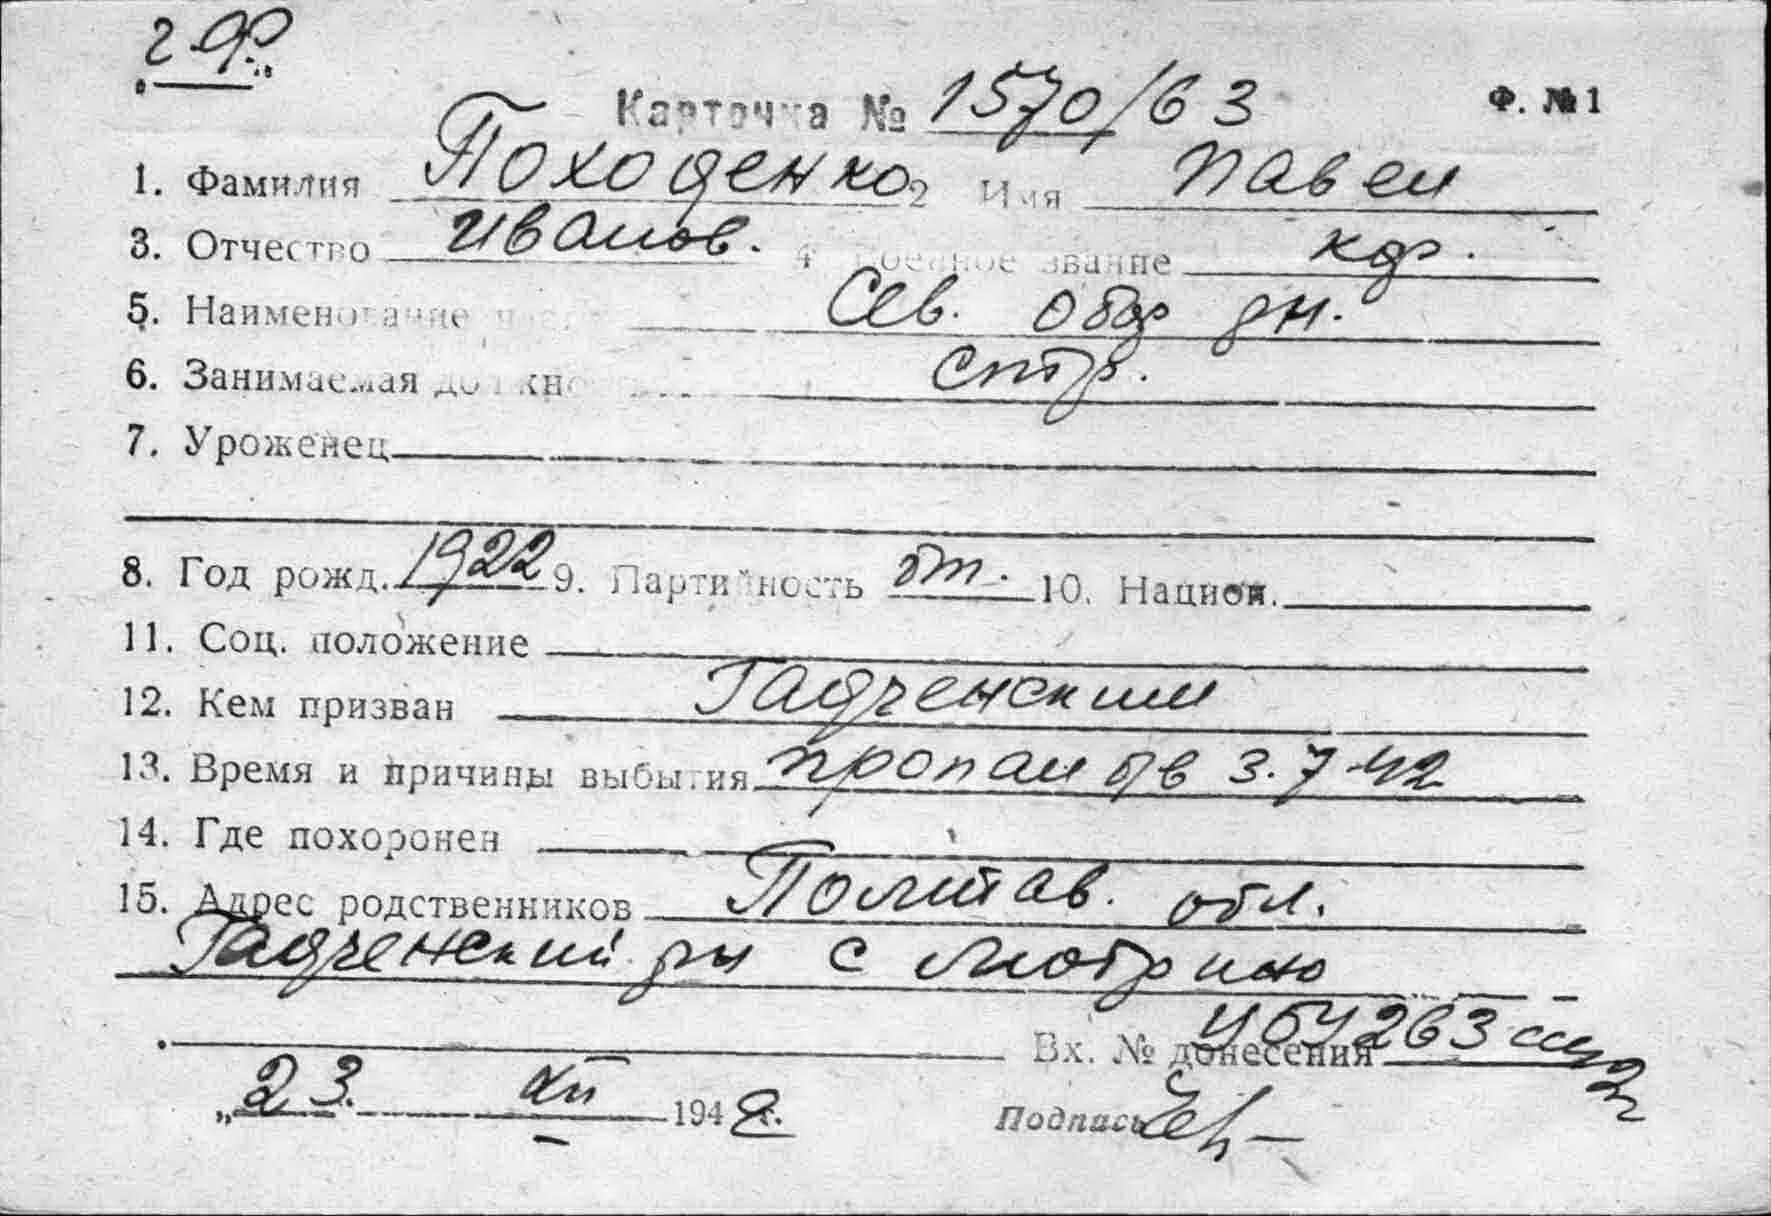 Карточка № 1570/63 Ф. № 1
1. Фамилия Походенко 2 Имя Павел
3. Отчество Иванов. 4 Военное звание кр.
5. Наименование част Сев. обор рн.
6. Занимаемая должно стр.
7. Уроженец
8. Год рожд. 1922 9. Партийность бп. 10. Национ.
11. Соц. положение
12. Кем призван Гадяченским
13. Время и причины выбытия пропал б/в 3.7.42
14. Где похоронен
15. Адрес родственников Полтав. обл.
Гадяченский рн с
Вх. № донесения
„23. XII 194 г.
Подпись